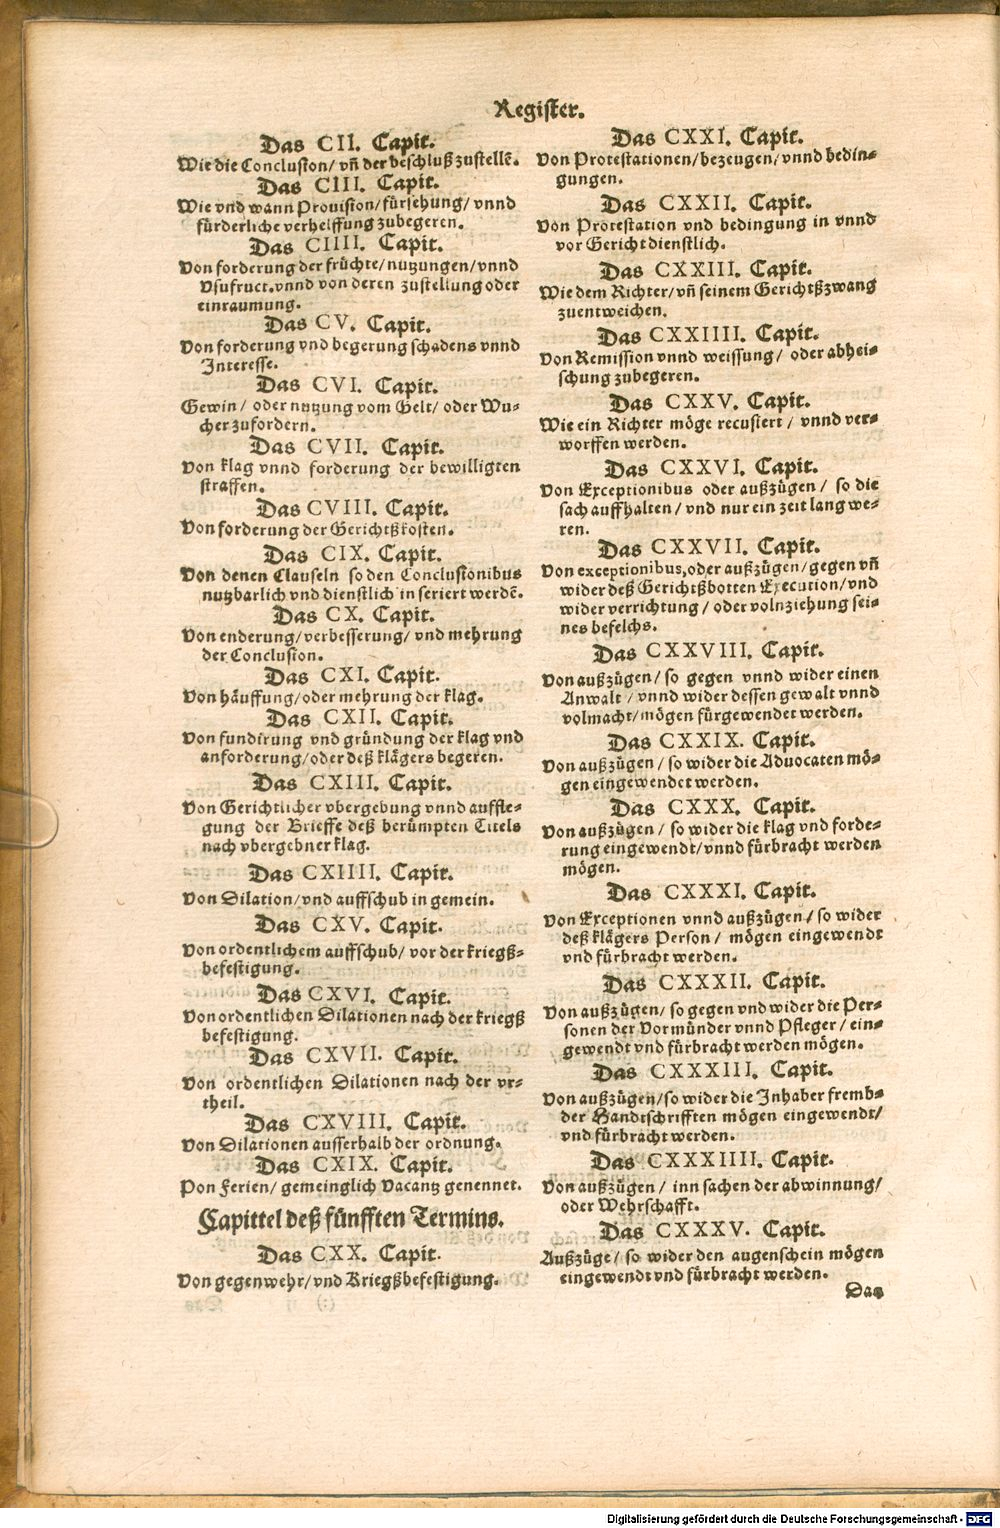 Register.
Das CII. Capit.
Wie die Conclusion/ vñ der beschluß zustellē.
Das CIII. Capit.
Wie vnd wann Prouision/ fürsehung/ vnnd
fürderliche verhelffung zubegeren.
Das CIIII. Capit.
Von forderung der früchte/ nutzungen/ vnnd
Vsufruct. vnnd von deren zustellung oder
einraumung.
Das CV. Capit.
Von forderung vnd begerung schadens vnnd
Interesse.
Das CVI. Capit.
Gewin/ oder nutzung vom Gelt/ oder Wu-
cher zufordern.
Das CVII. Capit.
Von klag vnnd forderung der bewilligten
straffen.
Das CVIII. Capit.
Von forderung der Gerichtßkosten.
Das CIX. Capit.
Von denen Clauseln so den Conclusionibus
nutzbarlich vnd dienstlich in seriert werdē.
Das CX. Capit.
Von enderung/ verbesserung/ vnd mehrung
der Conclusion.
Das CXI. Capit.
Von häuffung/ oder mehrung der klag.
Das CXII. Capit.
Von fundirung vnd gründung der klag vnd
anforderung/ oder deß klägers begeren.
Das CXIII. Capit.
Von Gerichtlicher vbergebung vnnd auffle-
gung der Brieffe deß berümpten Titels
nach vbergebner klag.
Das CXIIII. Capit.
Von Dilation/ vnd auffschub in gemein.
Das CXV. Capit.
Von ordentlichem auffschub/ vor der kriegß-
befestigung.
Das CXVI. Capit.
Von ordentlichen Dilationen nach der kriegß
befestigung.
Das CXVII. Capit.
Von ordentlichen Dilationen nach der vr-
theil.
Das CXVIII. Capit.
Von Dilationen ausserhalb der ordnung.
Das CXIX. Capit.
Pon Ferien/ gemeinglich Vacantz genennet.
Capittel deß fünfften Termins.
Das CXX. Capit.
Von gegenwehr/ vnd Kriegßbefestigung.
Das CXXI. Capit.
Von Protestationen/ bezeugen/ vnnd bedin-
gungen.
Das CXXII. Capit.
Von Protestation vnd bedingung in vnnd
vor Gericht dienstlich.
Das CXXIII. Capit.
Wie dem Richter/ vñ seinem Gerichtßzwang
zuentweichen.
Das CXXIIII. Capit.
Von Remission vnnd weissung/ oder abhei-
schung zubegeren.
Das CXXV. Capit.
Wie ein Richter möge recusiert/ vnnd ver-
worffen werden.
Das CXXVI. Capit.
Von Exceptionibus oder außzügen/ so die
sach auffhalten/ vnd nur ein zeit lang we-
ren.
Das CXXVII. Capit.
Von exceptionibus, oder außzügen/ gegen vñ
wider deß Gerichtßbotten Execution/ vnd
wider verrichtung/ oder volnziehung sei-
nes befelchs.
Das CXXVIII. Capit.
Von außzügen/ so gegen vnnd wider einen
Anwalt/ vnnd wider dessen gewalt vnnd
volmacht/ mögen fürgewendet werden.
Das CXXIX. Capit.
Von außzügen/ so wider die Aduocaten mö-
gen eingewendet werden.
Das CXXX. Capit.
Von außzügen/ so wider die klag vnd forde-
rung eingewendt/ vnnd fürbracht werden
mögen.
Das CXXXI. Capit.
Von Exceptionen vnnd außzügen/ so wider
deß klägers Person/ mögen eingewendt
vnd fürbracht werden.
Das CXXXII. Capit.
Von außzügen/ so gegen vnd wider die Per-
sonen der Vormünder vnnd Pfleger/ ein-
gewendt vnd fürbracht werden mögen.
Das CXXXIII. Capit.
Von außzügen/ so wider die Inhaber fremb-
der Handtschrifften mögen eingewendt/
vnd fürbracht werden.
Das CXXXIIII. Capit.
Von außzügen/ inn sachen der abwinnung/
oder Wehrschafft.
Das CXXXV. Capit.
Außzüge/ so wider den augenschein mögen
eingewendt vnd fürbracht werden.
Das
Digitalisierung gefördert durch die Deutsche Forschungsgemeinschaft - DFG